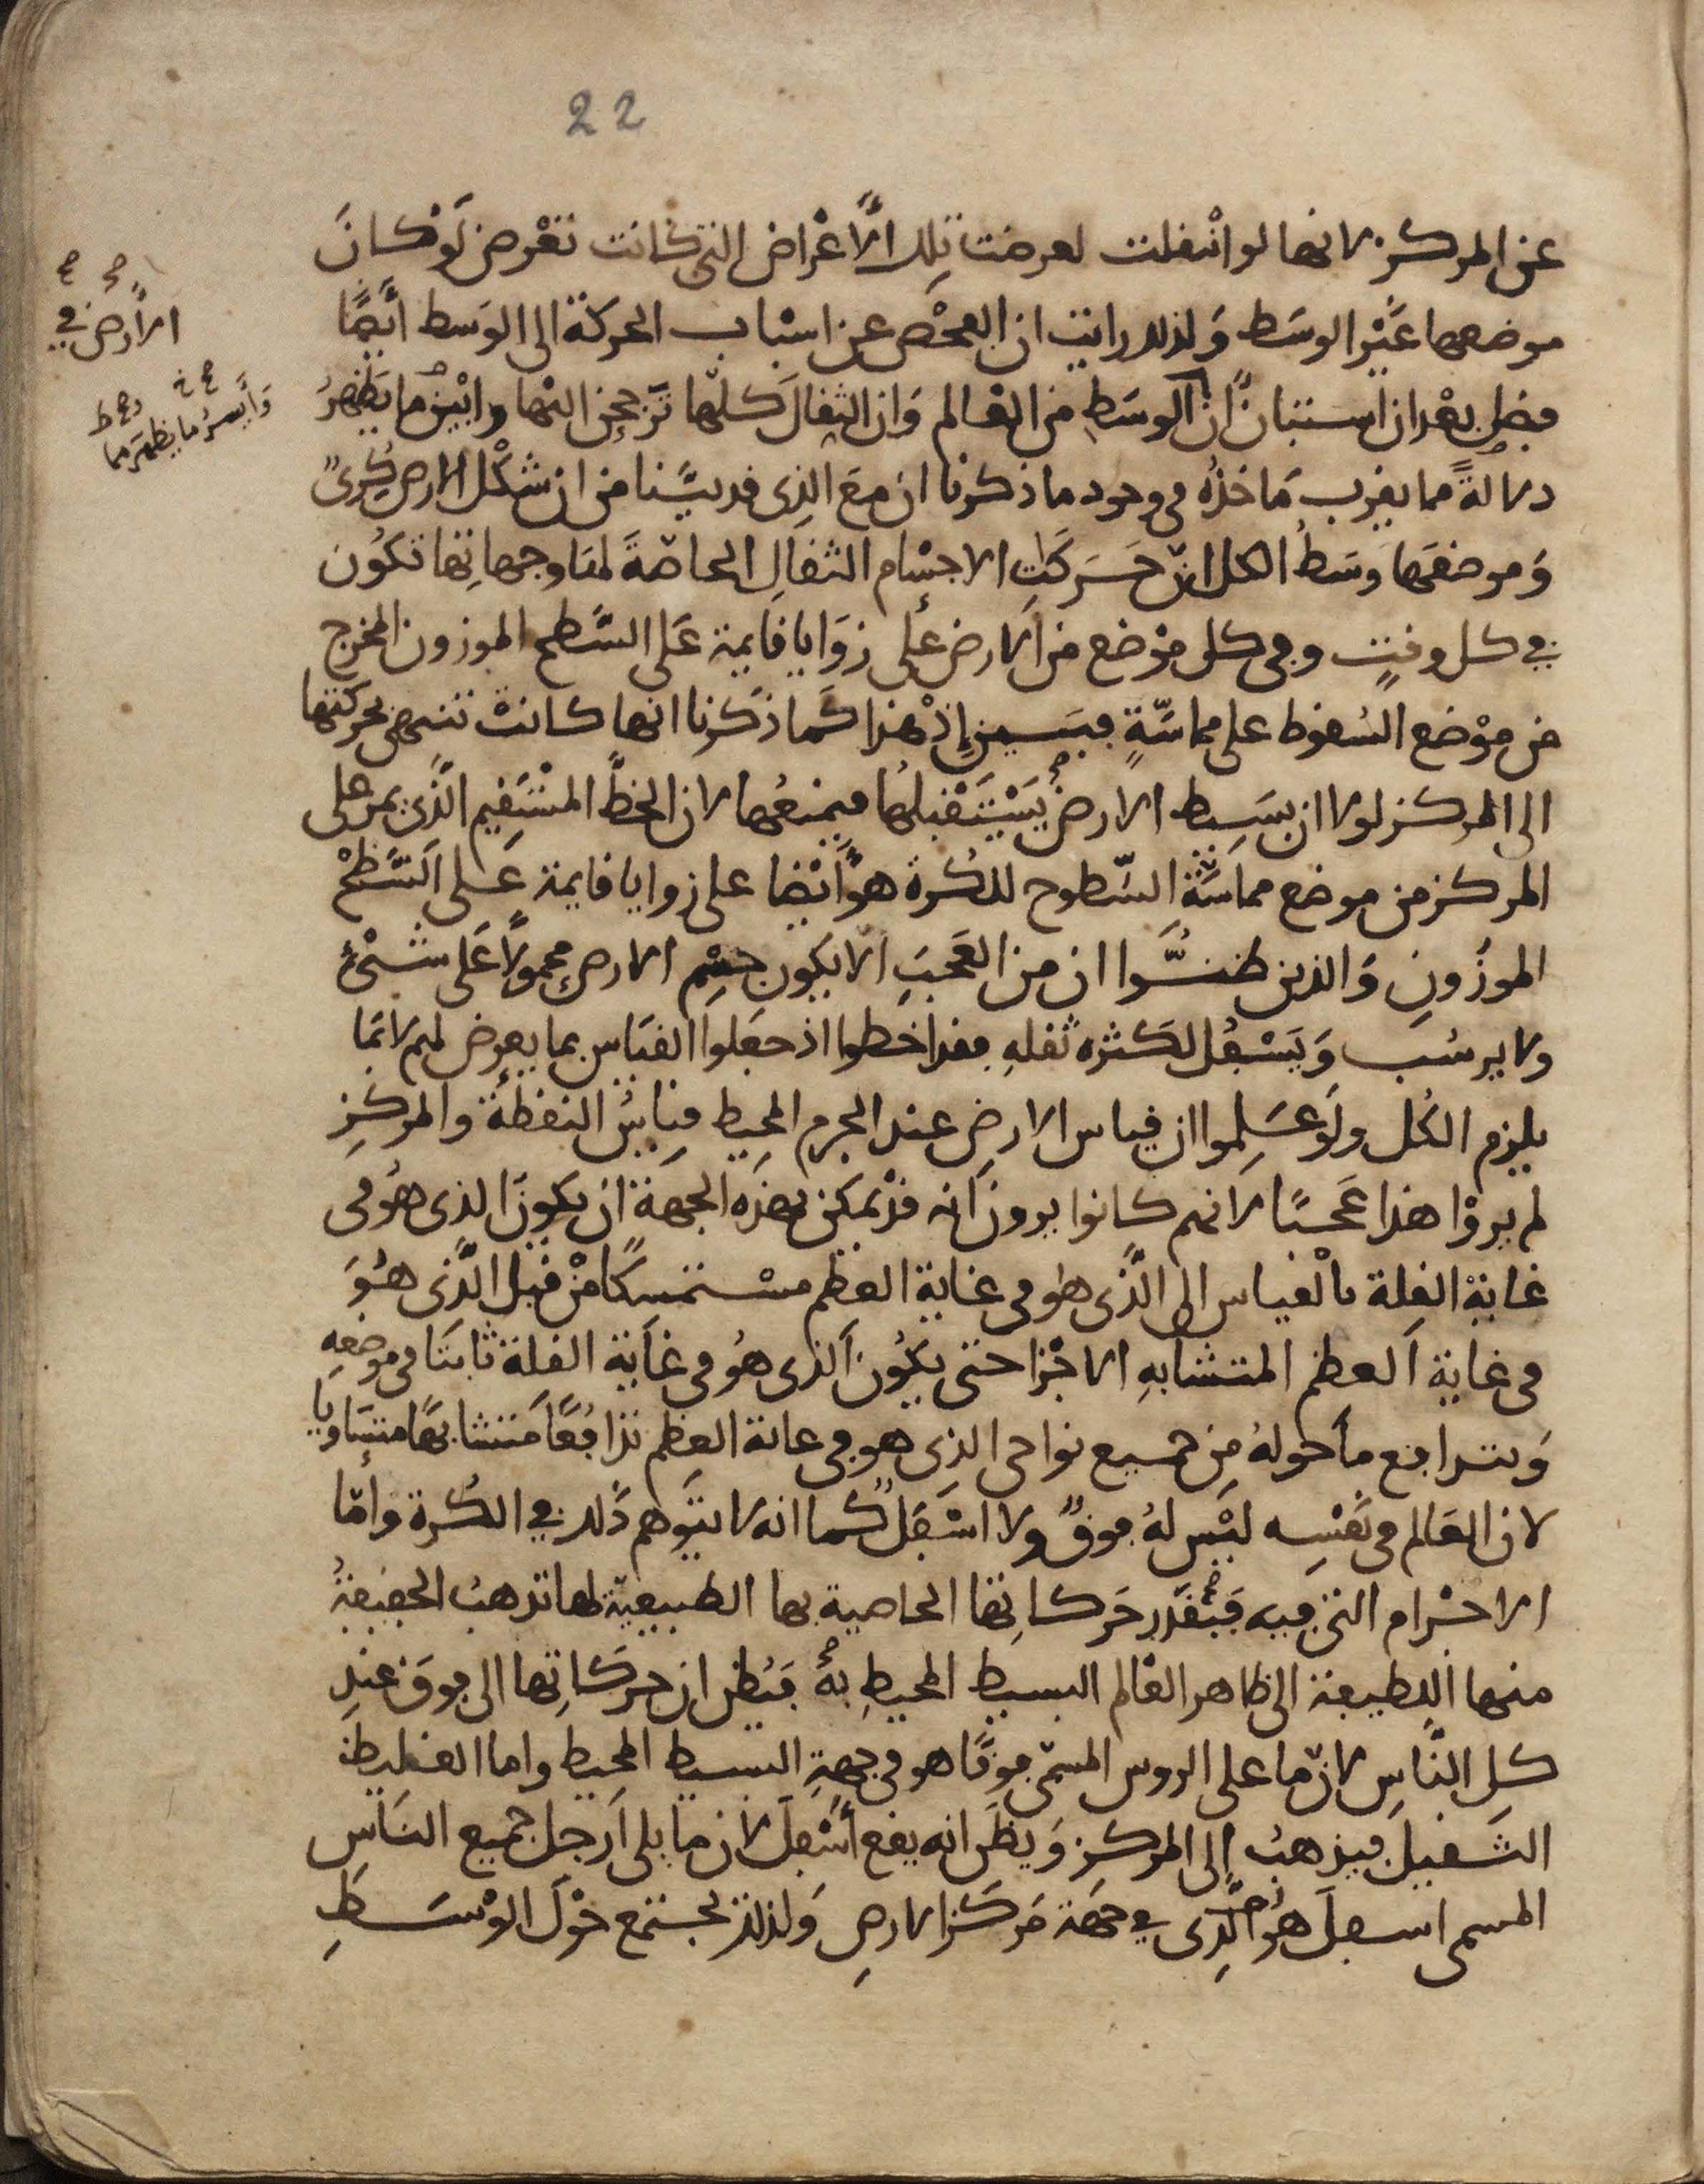 22
عن المركز لانها لو انتقلت لعرضت تلك الأعْراض التى كانت تعْرض لَوْ كانَ
موضعها غَيْر الوسَط وَلذلك رايت ان الفحْص عن اسْباب الحركة الى الوَسط أيضًا
فضل بعْد ان استبان أنّ الوسَطِ من العالم وَان الثقالَ كلّها تَرجحن اليْها وابْين ما يَظهرُ
دلالةً مما يقرب مَاخذُه فى وجود ما ذكرنا ان مَع الذِى قد بيّنا من ان شَكْل الارض كُرىّ
وَموضعَها وسَط الكل انّ حَركَتِ الاجْسام الثقالِ الخاصّةً لها وجهاتِها تكُون
في كل وقتٍ وفى كل موْضع من الارض على زوَايا قايمة عَلى السّطح الموزون المخرج
من موْضع السُقوط على مماسّةٍ فبَسين إِذْ هذا كَما ذَكرنا انها كانتْ تنتهى بحركتها
الى المركز لولا ان بسَيط الارضْ يَسْتَقْبلهُا فيمنعُها لان الخطّ المسْتَقيم الّذى يمر على
المركز من موضع مماسّة السّطوح للكُرة هوُ أيْضا على زوايا قايمة عَلى السَّطحْ
الموزُونِ وَالذين ظنُّوا ان من العَجبِ الا يكون جِسْم الارض محمولاً عَلى شَىْءٍ
ولا يرسُب وَيَسْفُل لكَثره ثقلهِ فقد اخطوا اذ جعَلوا القيَاس بما يعرض لهم لا بمَا
يلزم الكُل ولَو عَلِموا ان قياس الارضِ عند الجرم المحيط قِيَاسُ النقطة والمركزِ
لم يروْا هذا عَجبًا لانهم كانوا يرون انه قدْ يمكن بهذه الجهة ان يكون الذى هوُ فى
غايةْ القلة بالْقياس الى الّذى هو فى غاية العظم مسْتمسكًا منْ قبل الّذى هُوَ
فى غاية العظم المتشابهِ الاجْزا حتى يكُون الذى هُو فى غاية القلة ثابتًا فى موضعِهِ
وَيتدافع مأ حوله مِن جميع نواحى الذِى هو فى غاية العظم تدافُعًا متشابهًا متساويا
لان العَالم فى نَفْسِه ليْس لهُ فوقٌ ولا اسْفلٌ كما انه لا يتوهم ذلك في الكُرة وأمّا
الاجْرام التى فيه فبقَدر حَركاتِها الخاصية بها الطبيعيّة لها تذهبُ الخفيفةُ
منها اللطيفة الى ظاهر العَالم البسيط المحيطِ بهُ فيُظن ان حركَاتِها الى فوق عندِ
كلِ النّاسِ لانّ ما على الروس المسمّى فوقًا هو فى جهةِ البسيط المحيط واما الغليظ
الثقيل فيذهبُ إلى المركز وَيظَن انه يقع أسْفلَ لان ما يلى أرجل جميع النَاس
المسمى اسفل هوُ الّذِى في جهَة مَركَز الارضِ وَلذلك يجتمع حَوْل الوْسَطِ
الأرض في
وَأيْسرُ ما يظهر مما